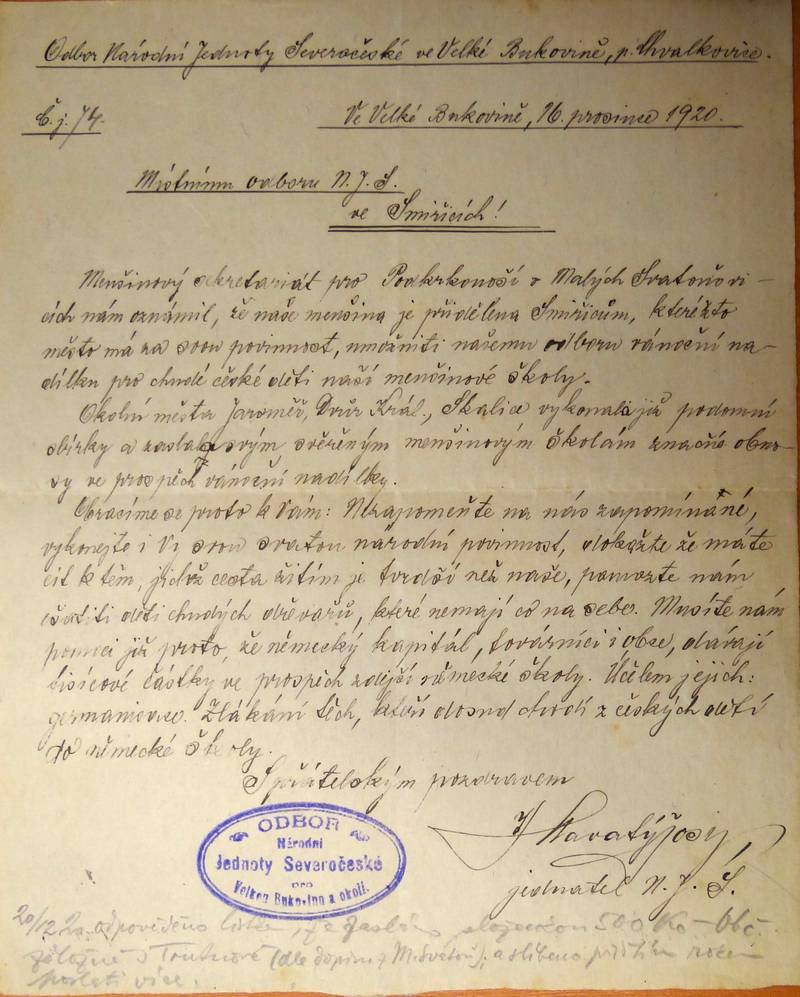 Odbor Národní Jednoty Severočeské ve Velké Bukovině, p. Chvalkovice.
Č. j. 74. Ve Velké Bukovině, 16. prosince 1920.
Místnímu odboru N. J. S.
ve Smiřicích!
Menšinový sekretariát pro Podkrkonoší v Malých Svatoňovi-
cích nám oznámil, že naše menšina je přidělena Smiřicům, kteréžto
město má za svou povinnost, umožniti našemu odboru vánoční na-
dílku pro chudé české děti naší menšinové školy.
Okolní města Jaroměř, Dvůr Král., Skalice vykonala již podomní
sbírky a zaslala svým svěřeným menšinovým školám značné obno-
sy ve prospěch vánoční nadílky.
Obracíme se proto k Vám: Nezapomeňte na nás zapomínané,
vykonejte i Vy svou svatou národní povinnost, dokažte že máte
cit k těm, jichž cesta žitím je tvrdší než naše, pomozte nám
ošatiti děti chudých dřevařů, které nemají co na sebe. Musíte nám
pomoci již proto, že německý kapitál, továrníci i obce, dávají
tisícové částky ve prospěch zdejší německé školy. Účelem jejich:
germanisace. Zlákání těch, kteří dosud chodí z českých dětí
do německé školy.
S přátelským pozdravem
jednatel N. J. S.
ODBOR
Národní
Jednoty Severočeské
pro
Velkou Bukovinu a okolí.
20/12 20. odpovězeno že zasláno složenkou 500 Kč
(dle dopisu z M. Svatoň.); a slíbeno příštím rokem
poslati více.